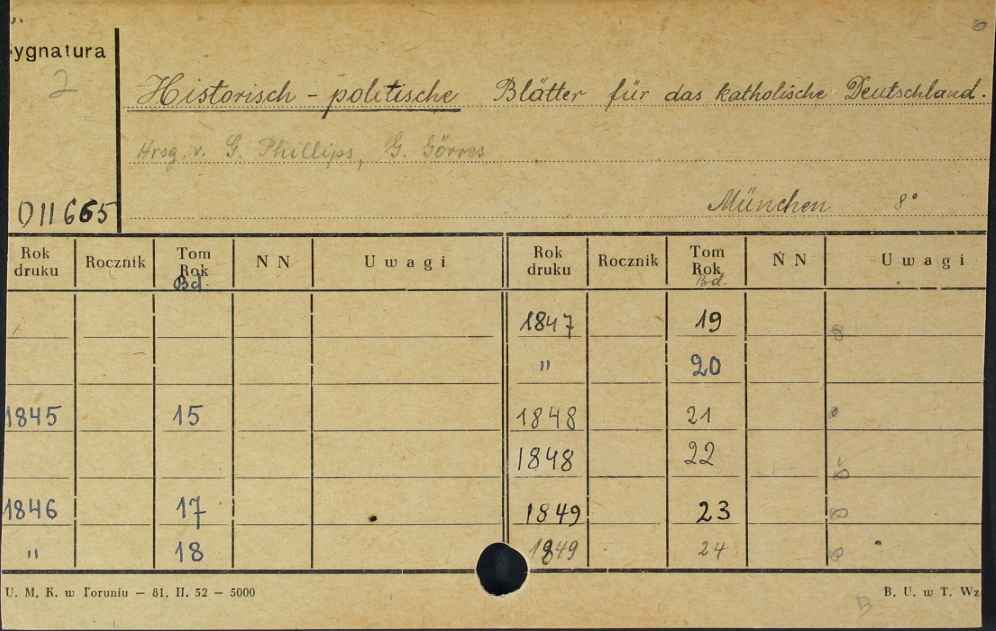 ygnatura
2
Historisch - politische Blätter für das katholische Deutschland.
Hrsg. v. G. Phillips, G. Görres
011665
München 8°
Rok druku Rocznik Tom Rok Bd. N N Uwagi Rok druku Rocznik Tom Rok Bd. N N Uwagi
1847 19 8
" 20
1845 15 1848 21
1848 22
1846 17 1849 23
" 18 1849 24
U. M. K. w Toruniu — 81. II. 52 — 5000 B. U. w T. Wz
B